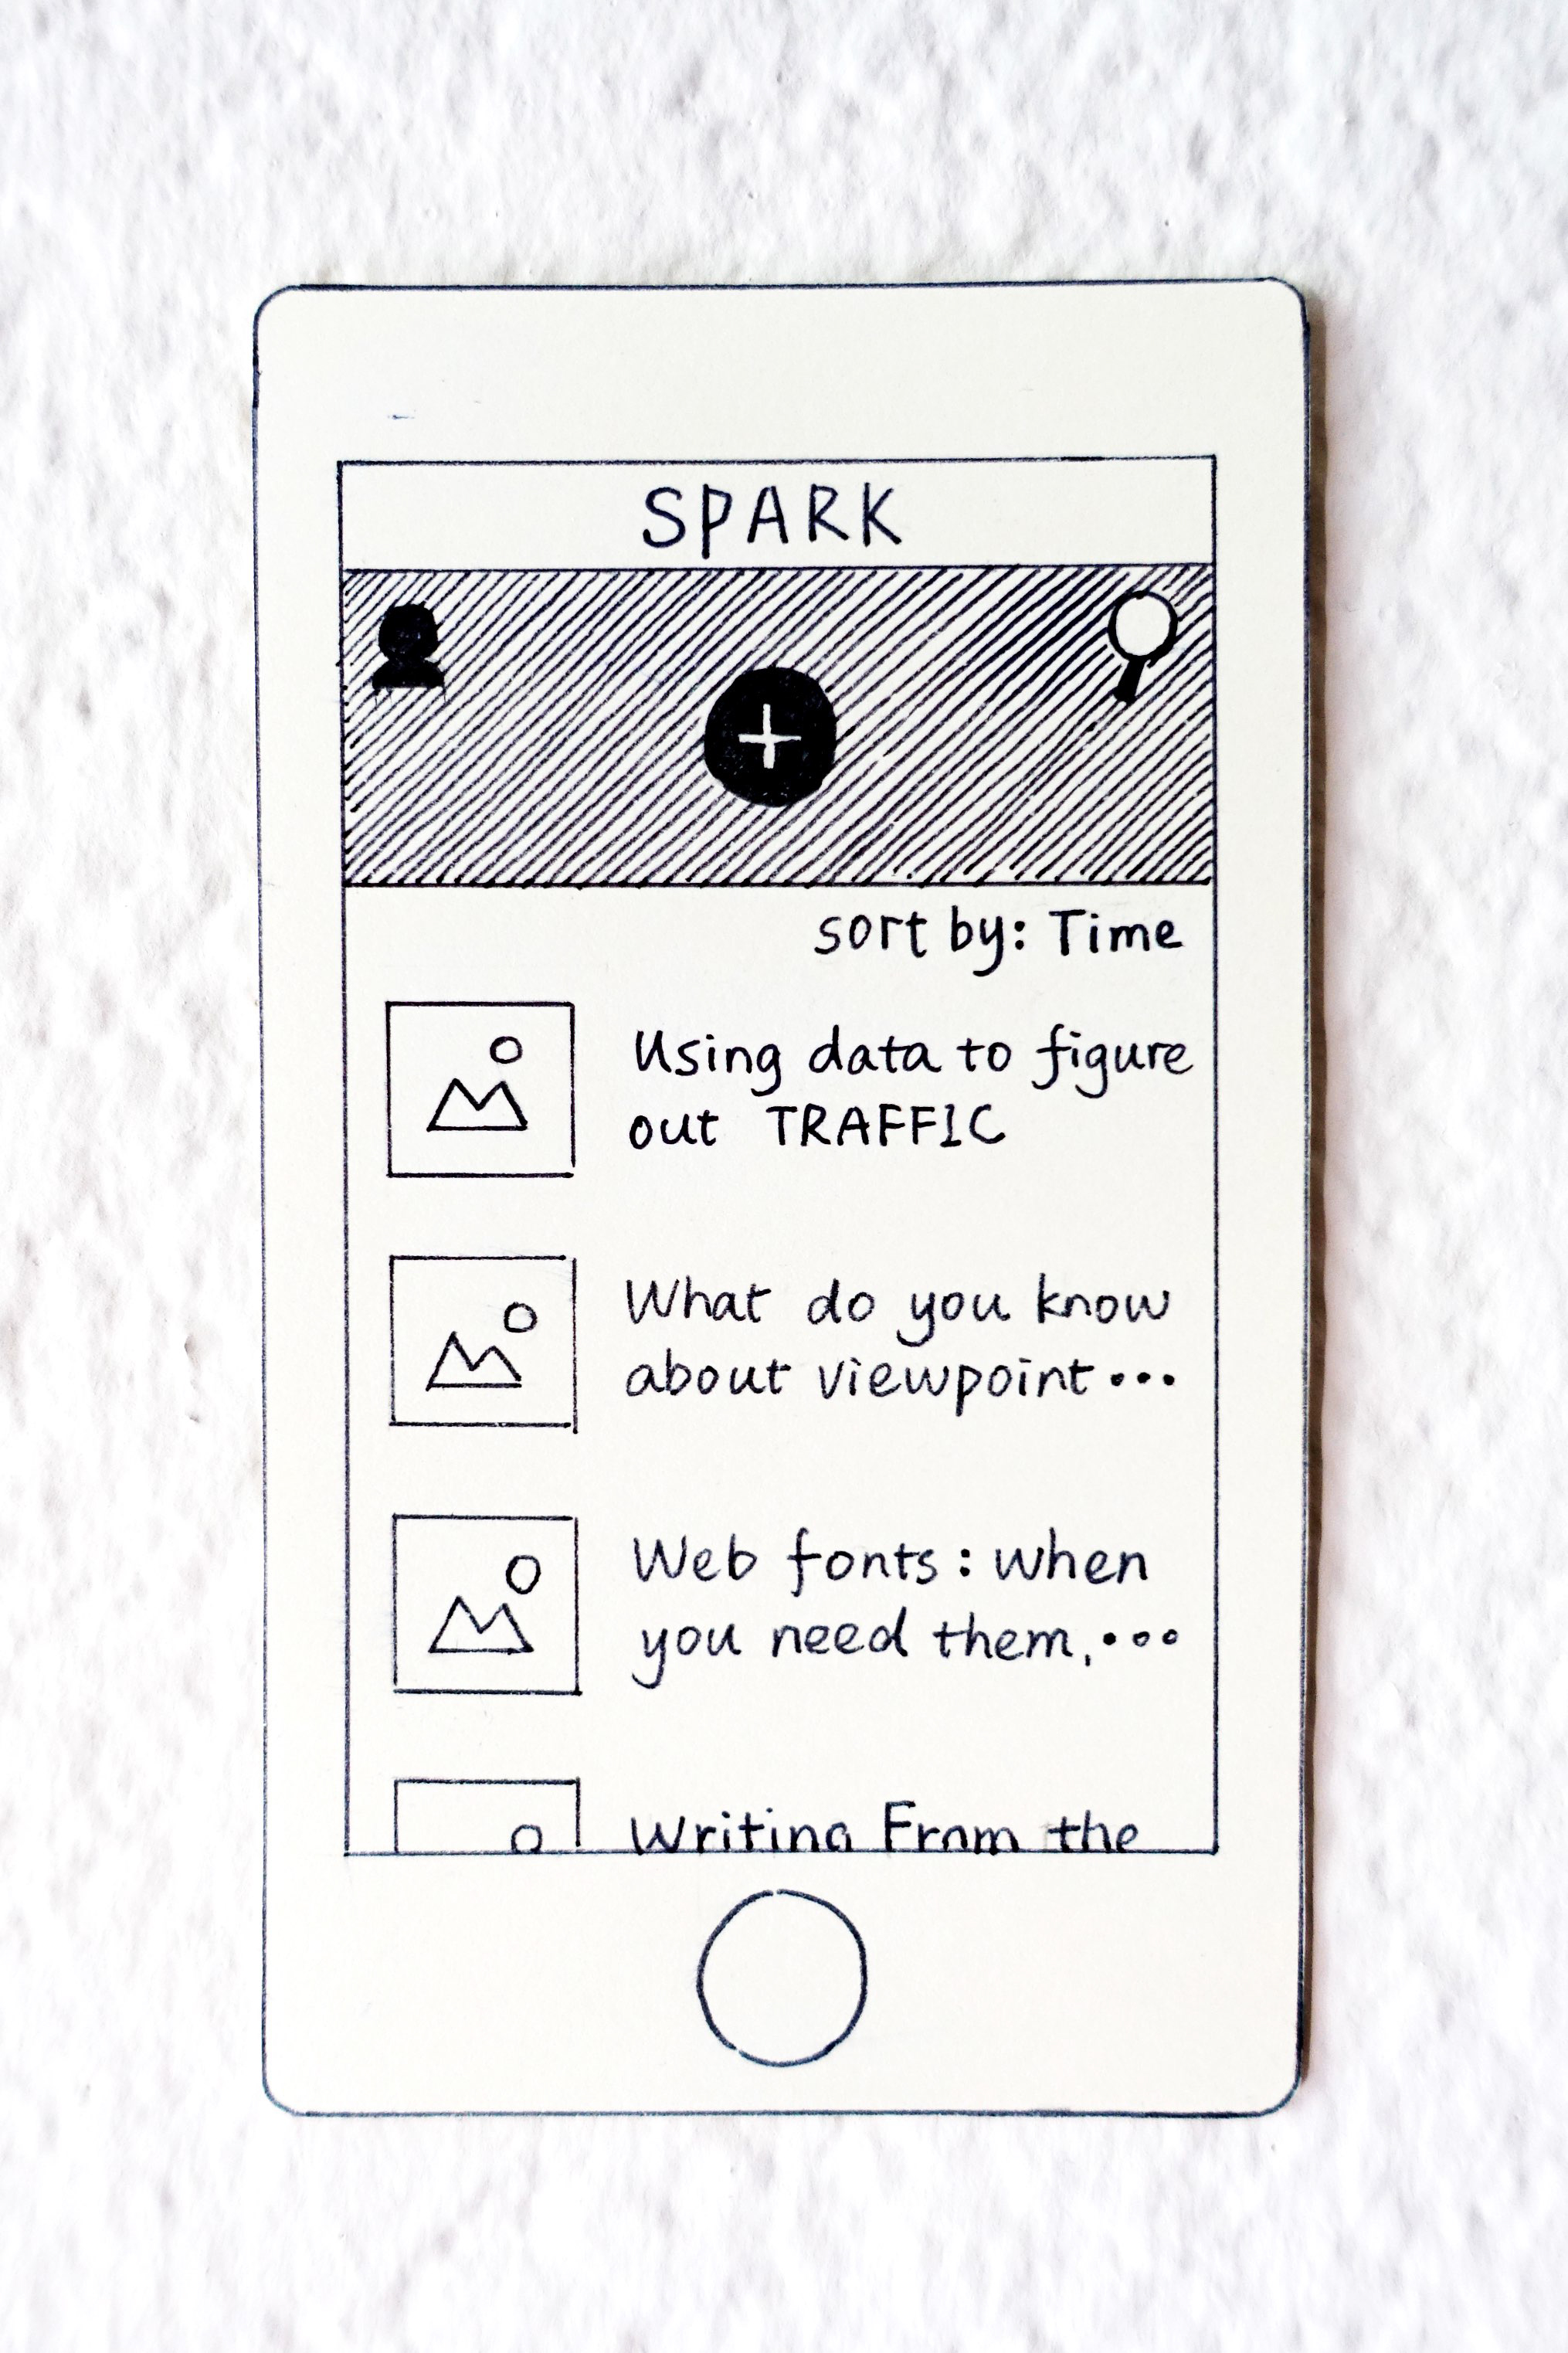 SPARK
sort by: Time
Using data to figure
out TRAFFIC
What do you know
about viewpoint...
Web fonts: when
you need them,...
Writing From the